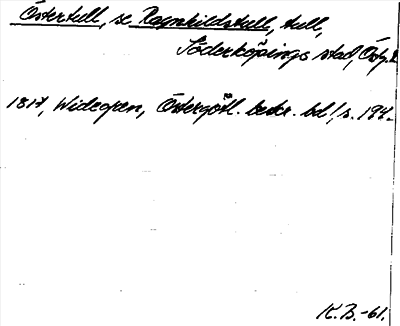 Östertull, se Ragnhildstull, tull,
Söderköpings stad, Östg.
1817, Widegren, Östergötl. beskr. bd 1, s. 194.
K.B.-61.